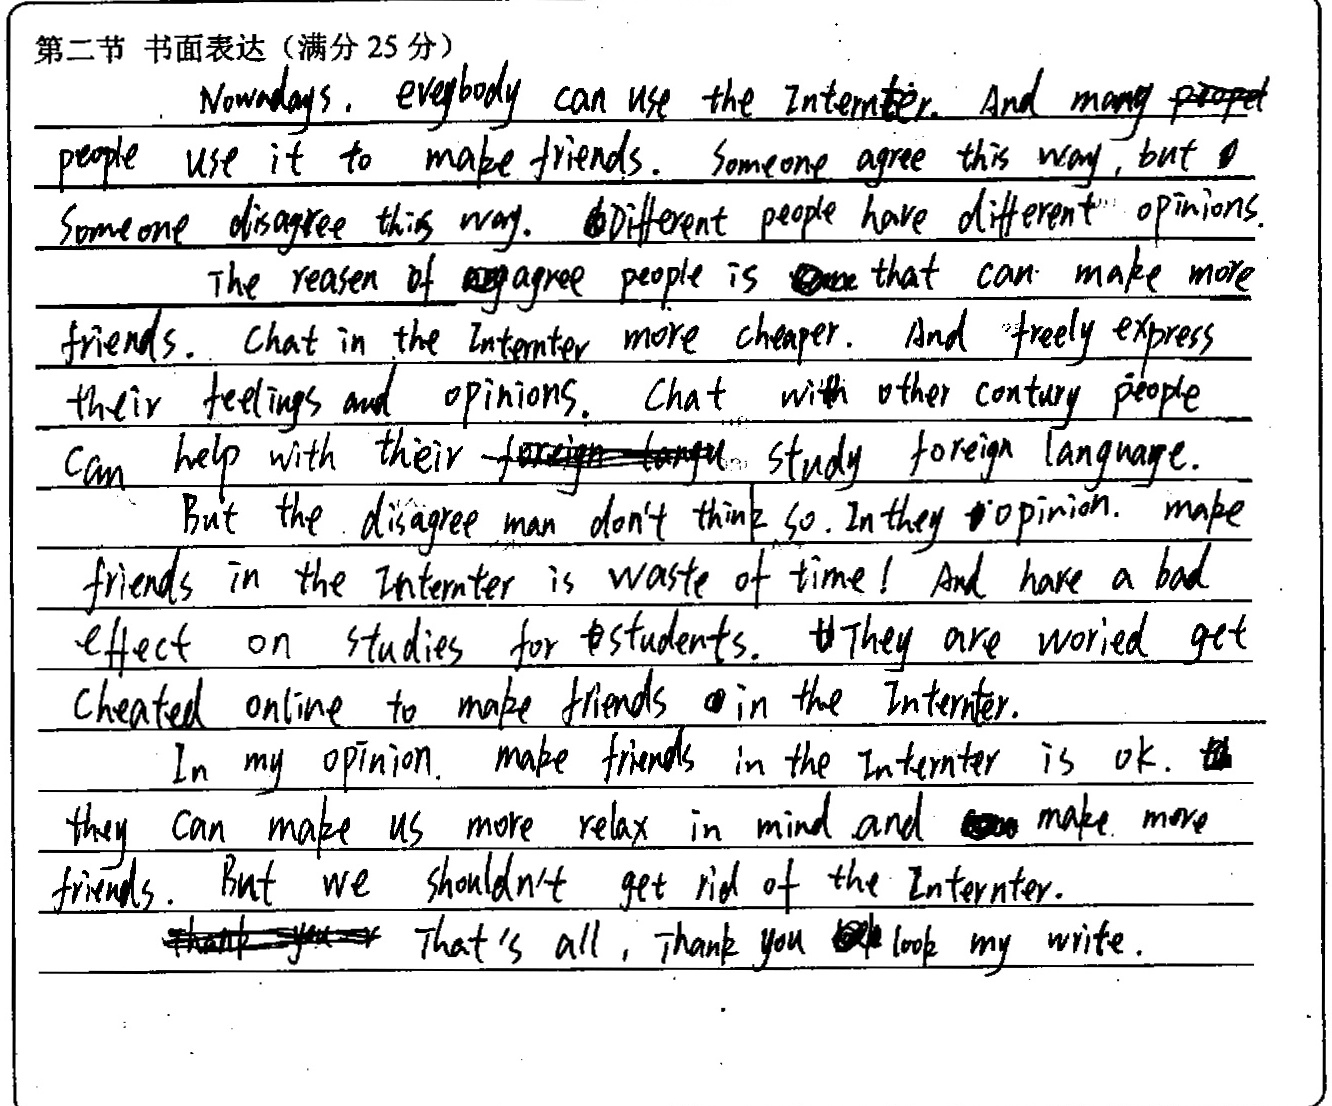 第二节 书面表达（满分 25 分）
Nowadays. evegbody can use the Internter. And many
people use it to make friends. Someone agree this way, but
Someone disagree this way. Different people have different opinions.
The reasen of agree people is that can make more
friends. Chat in the Internter more cheaper. And freely express
their feelings and opinions. Chat with other contury people
can help with their study foreign language.
But the disagree man don't think so. In they opinion. make
friends in the Internter is waste of time! And have a bad
effect on studies for students. They are woried get
Cheated online to make friends in the Internter.
In my opinion. make friends in the Internter is ok.
they can make us more relax in mind and make more
friends. But we shouldn't get rid of the Internter.
That's all, Thank you look my write.